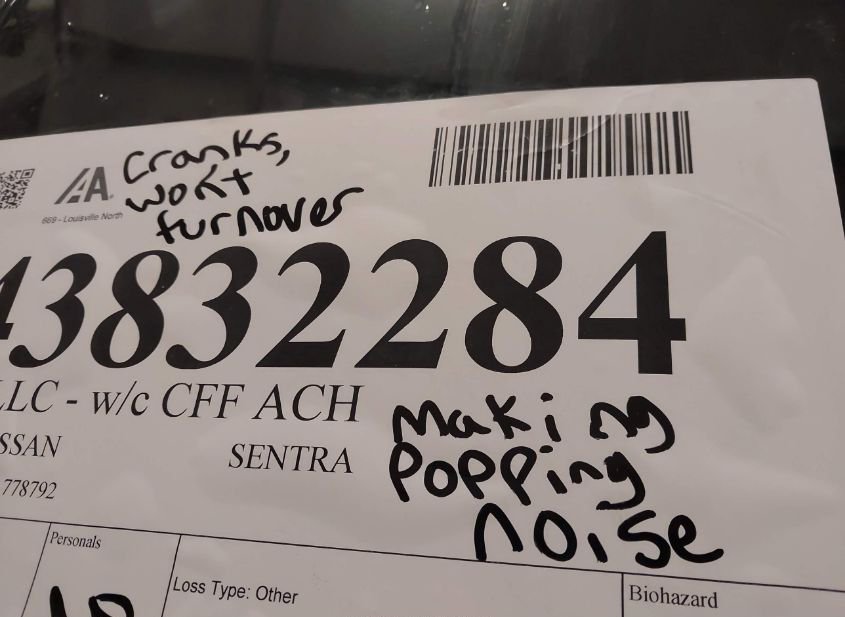 Cranks,
wont
turnover
IAA
669 - Louisville North
43832284
LLC - w/c CFF ACH
SENTRA
778792
Making
Popping
noise
Personals
Loss Type: Other
Biohazard